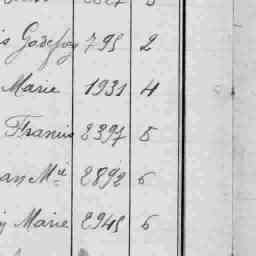 Godefroy 795 2
Marie 1931 4
Francis 2397 5
an Mie 2892 6
Marie 2945 6